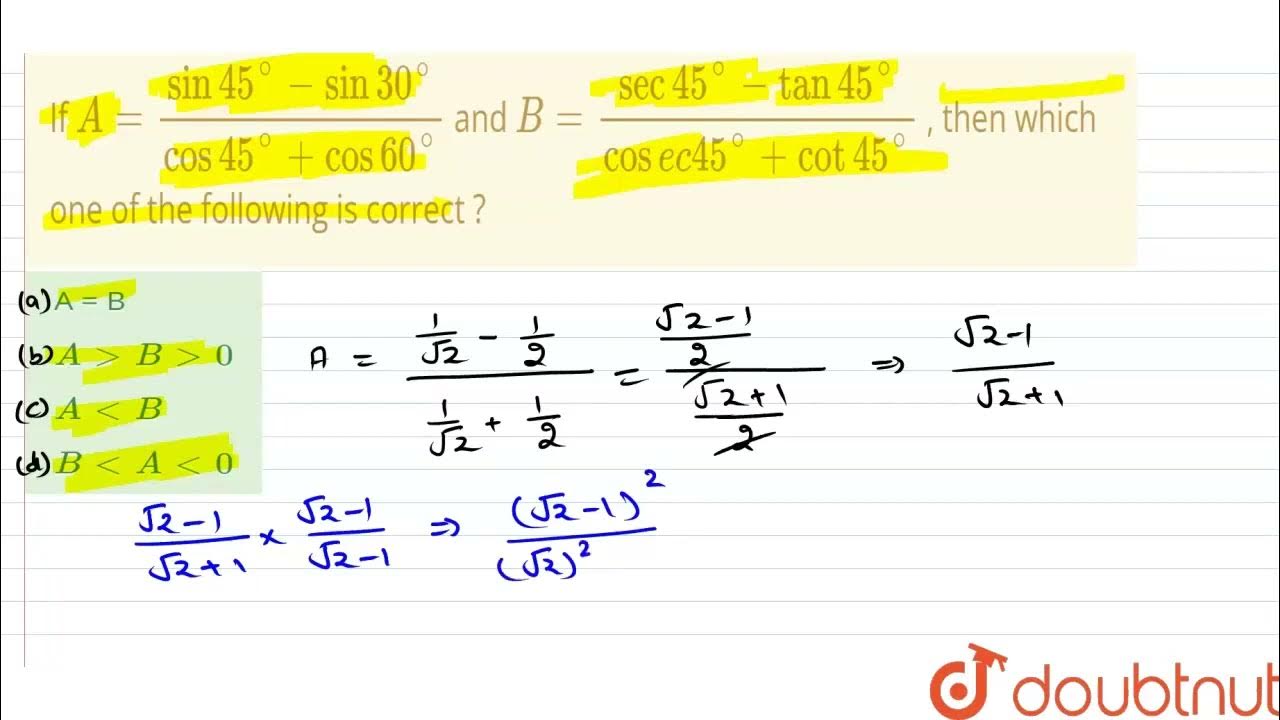 If A = (sin 45° − sin 30°)/(cos 45° + cos 60°) and B = (sec 45° − tan 45°)/(cosec45° + cot 45°) , then which
one of the following is correct ?
(a) A = B
(b) A > B > 0
(c) A < B
(d) B < A < 0
A = (1/√2 − 1/2)/(1/√2 + 1/2) = ((√2−1)/2)/((√2+1)/2) ⇒ (√2−1)/(√2+1)
(√2−1)/(√2+1) × (√2−1)/(√2−1) ⇒ (√2−1)²/(√2)²
doubtnut